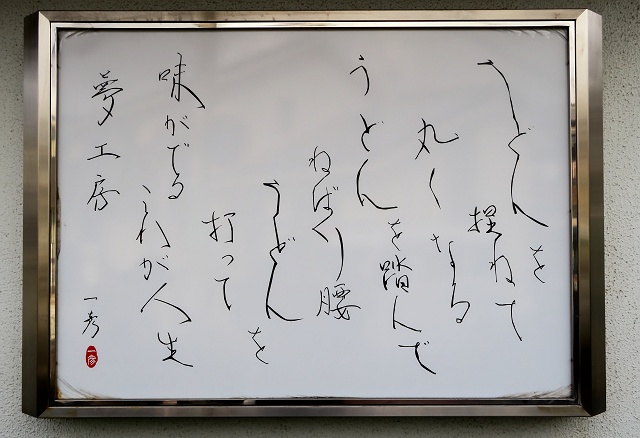 うどんを
捏ねて
丸く
なる
うどん
を踏んで
ねばり腰
うどんを
打って
味がでる
これが人生
夢工房